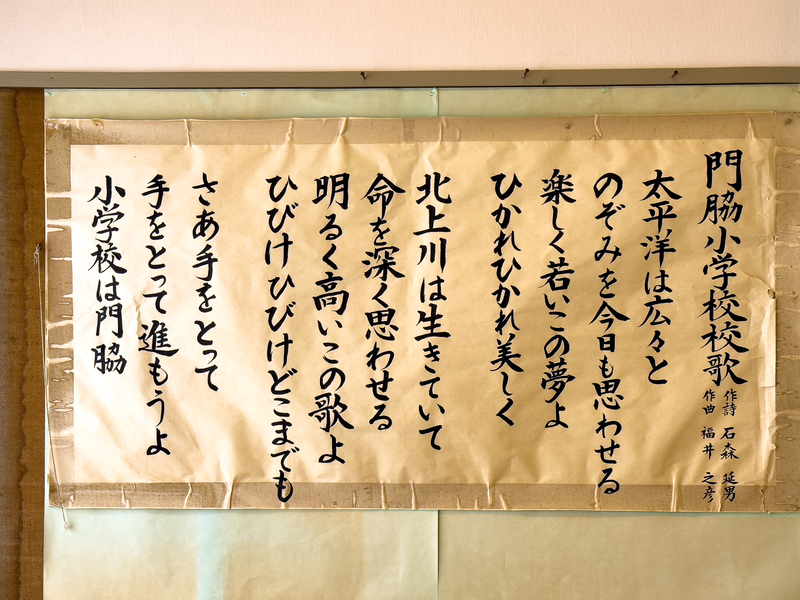 門脇小学校校歌
作詩 石森 延男
作曲 福井 之彦
太平洋は広々と
のぞみを今日も思わせる
楽しく若いこの夢よ
ひかれひかれ美しく
北上川は生きていて
命を深く思わせる
明るく高いこの歌よ
ひびけひびけどこまでも
さあ手をとって
手をとって進もうよ
小学校は門脇